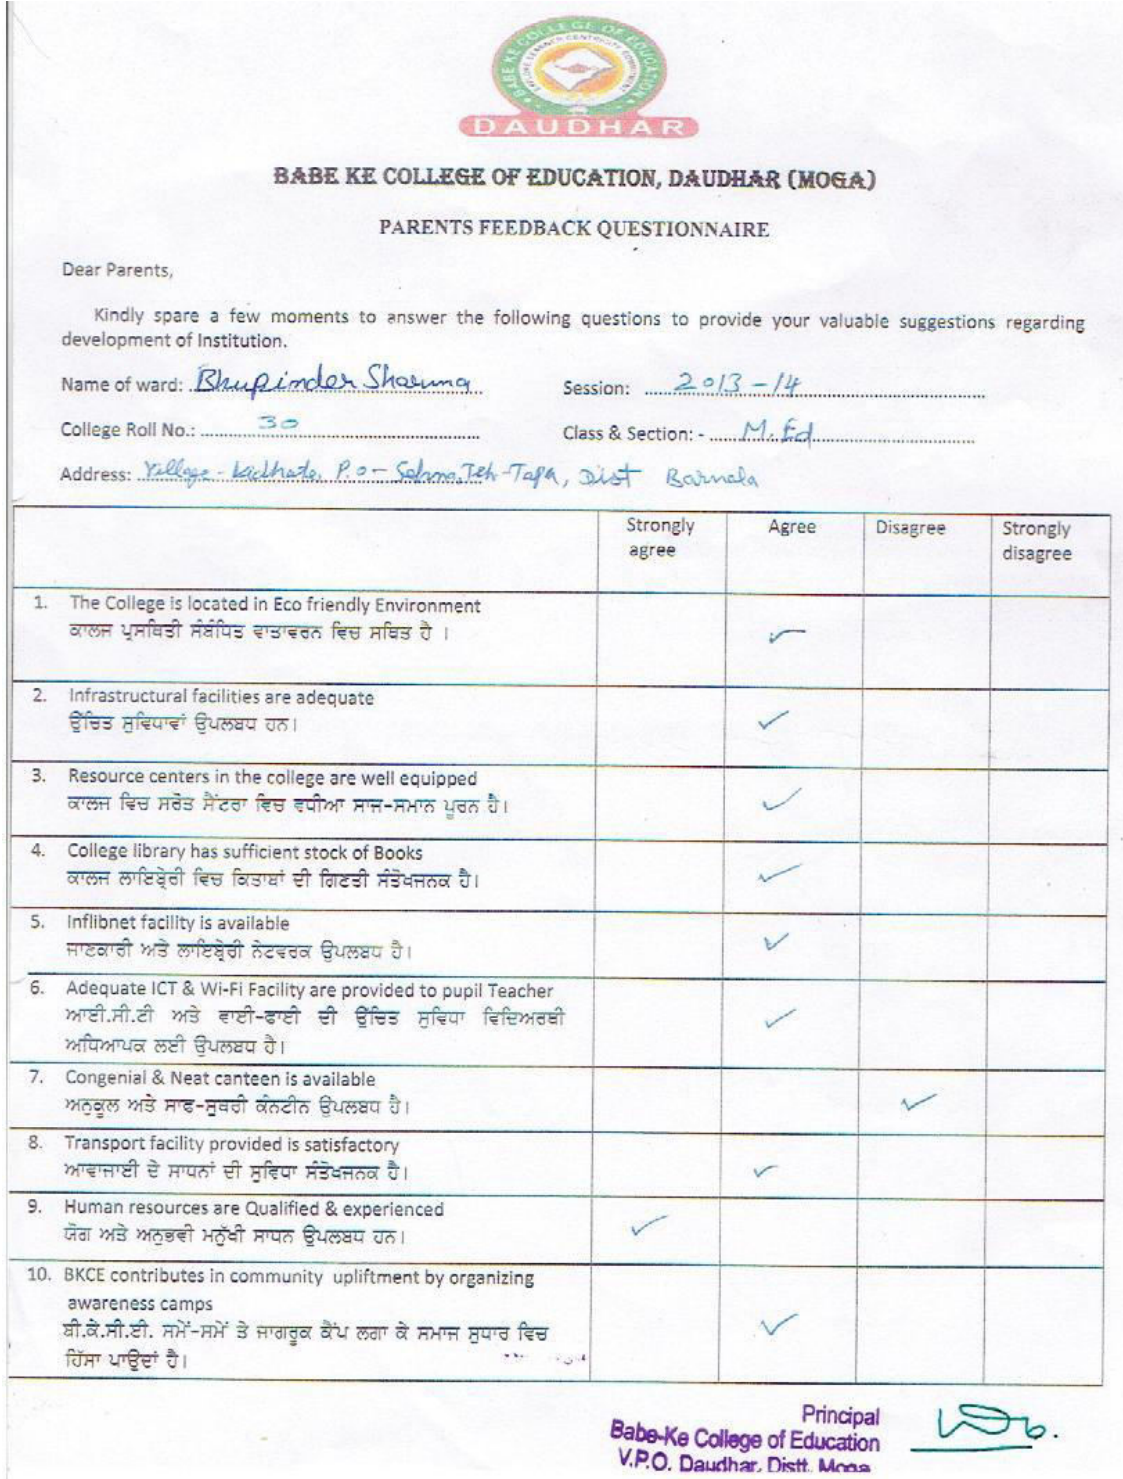 BABE KE COLLEGE OF EDUCATION
DAUDHAR
BABE KE COLLEGE OF EDUCATION, DAUDHAR (MOGA)
PARENTS FEEDBACK QUESTIONNAIRE
Dear Parents,
Kindly spare a few moments to answer the following questions to provide your valuable suggestions regarding
development of Institution.
Name of ward: Bhupinder Sharma Session: 2013-14
College Roll No.: 30 Class & Section: - M.Ed
Address: Village - P.O - Teh-Tapa, Dist Barnala
Strongly agree Agree Disagree Strongly disagree
1. The College is located in Eco friendly Environment
ਕਾਲਜ ਪ੍ਰਸਥਿਤੀ ਸੰਬੰਧਿਤ ਵਾਤਾਵਰਨ ਵਿਚ ਸਥਿਤ ਹੈ ।
2. Infrastructural facilities are adequate
ਉੱਚਿਤ ਸੁਵਿਧਾਵਾਂ ਉਪਲਬਧ ਹਨ।
3. Resource centers in the college are well equipped
ਕਾਲਜ ਵਿਚ ਸਰੋਤ ਸੈਂਟਰਾ ਵਿਚ ਵਧੀਆ ਸਾਜ-ਸਮਾਨ ਪੂਰਨ ਹੈ।
4. College library has sufficient stock of Books
ਕਾਲਜ ਲਾਇਬ੍ਰੇਰੀ ਵਿਚ ਕਿਤਾਬਾਂ ਦੀ ਗਿਣਤੀ ਸੰਤੋਖਜਨਕ ਹੈ।
5. Inflibnet facility is available
ਜਾਣਕਾਰੀ ਅਤੇ ਲਾਇਬ੍ਰੇਰੀ ਨੇਟਵਰਕ ਉਪਲਬਧ ਹੈ।
6. Adequate ICT & Wi-Fi Facility are provided to pupil Teacher
ਆਈ.ਸੀ.ਟੀ ਅਤੇ ਵਾਈ-ਫਾਈ ਦੀ ਉੱਚਿਤ ਸੁਵਿਧਾ ਵਿਦਿਅਰਥੀ
ਅਧਿਆਪਕ ਲਈ ਉਪਲਬਧ ਹੈ।
7. Congenial & Neat canteen is available
ਅਨੁਕੂਲ ਅਤੇ ਸਾਫ-ਸੁਥਰੀ ਕੰਨਟੀਨ ਉਪਲਬਧ ਹੈ।
8. Transport facility provided is satisfactory
ਆਵਾਜਾਈ ਦੇ ਸਾਧਨਾਂ ਦੀ ਸੁਵਿਧਾ ਸੰਤੋਖਜਨਕ ਹੈ।
9. Human resources are Qualified & experienced
ਯੋਗ ਅਤੇ ਅਨੁਭਵੀ ਮਨੁੱਖੀ ਸਾਧਨ ਉਪਲਬਧ ਹਨ।
10. BKCE contributes in community upliftment by organizing
awareness camps
ਬੀ.ਕੇ.ਸੀ.ਈ. ਸਮੇਂ-ਸਮੇਂ ਤੇ ਜਾਗਰੂਕ ਕੈਂਪ ਲਗਾ ਕੇ ਸਮਾਜ ਸੁਧਾਰ ਵਿਚ
ਹਿੱਸਾ ਪਾਉਂਦਾਂ ਹੈ।
Principal
Babe-Ke College of Education
V.P.O. Daudhar, Distt. Moga